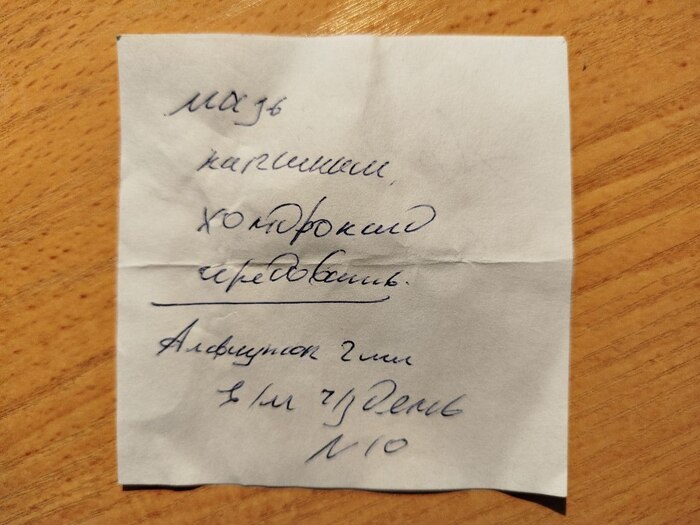 мазь
капсикам
хондроксид
чередовать.
Алфлутоп 2 мл
в/м ч/з день
N 10